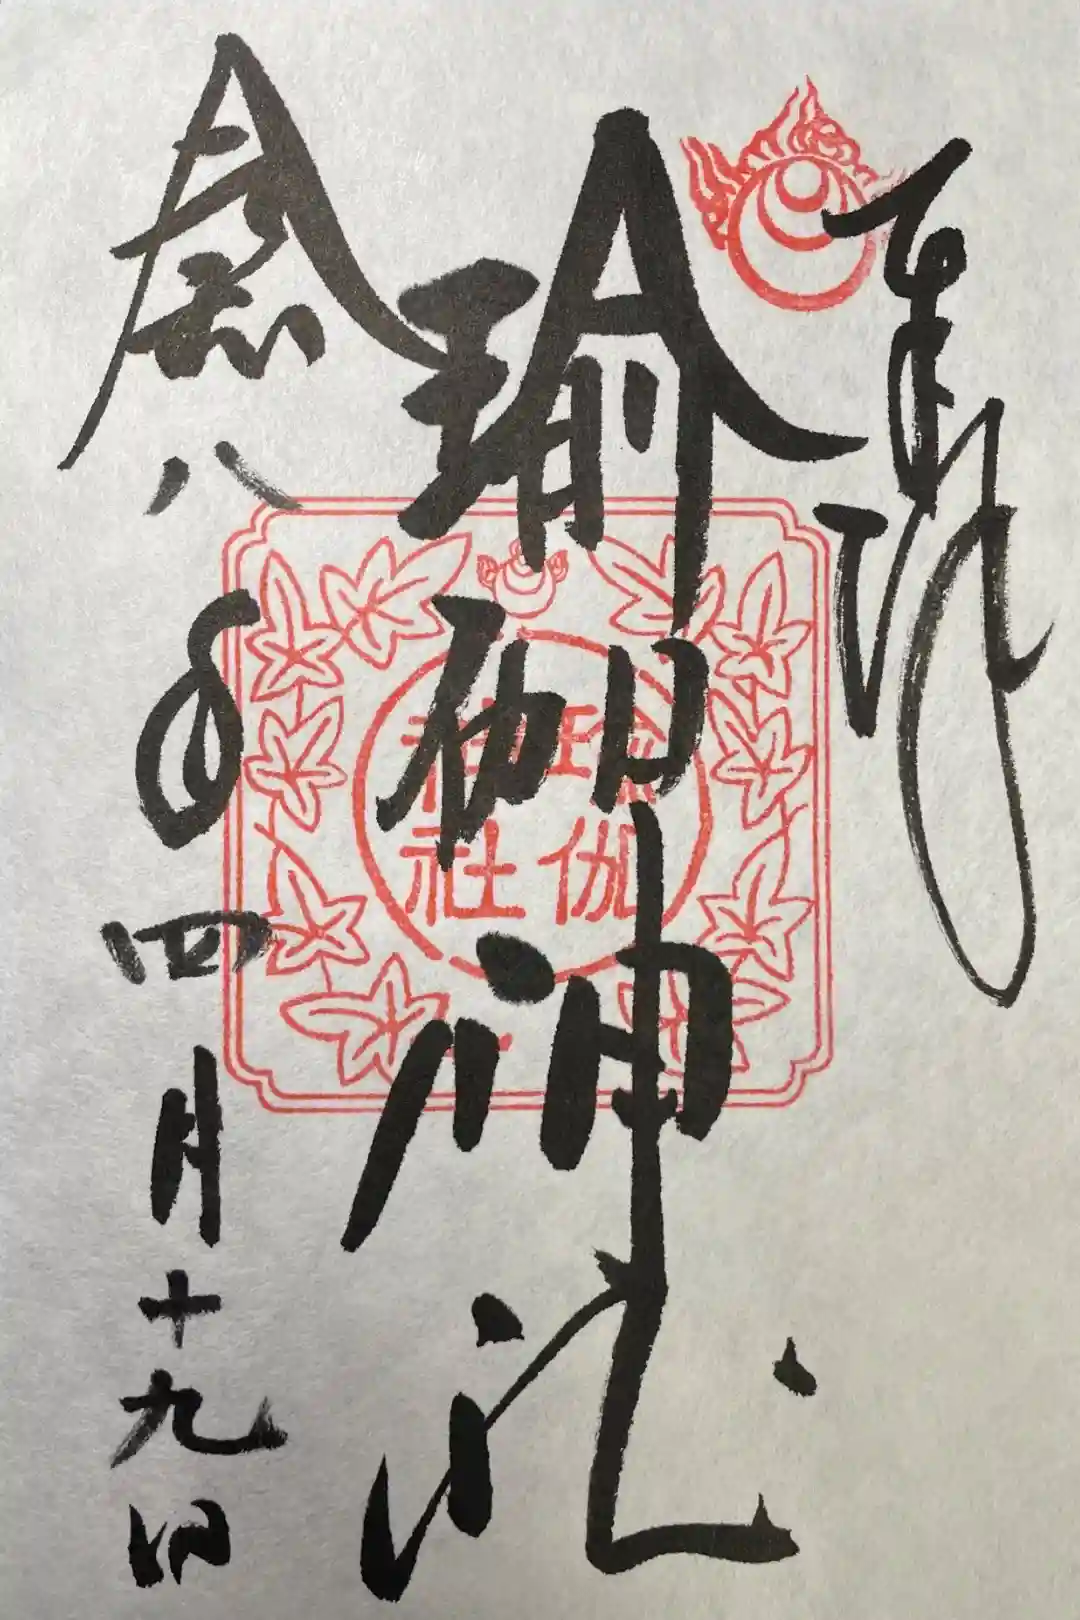 奉拝
瑜伽神社
令和八年四月十九日
瑜伽
神社